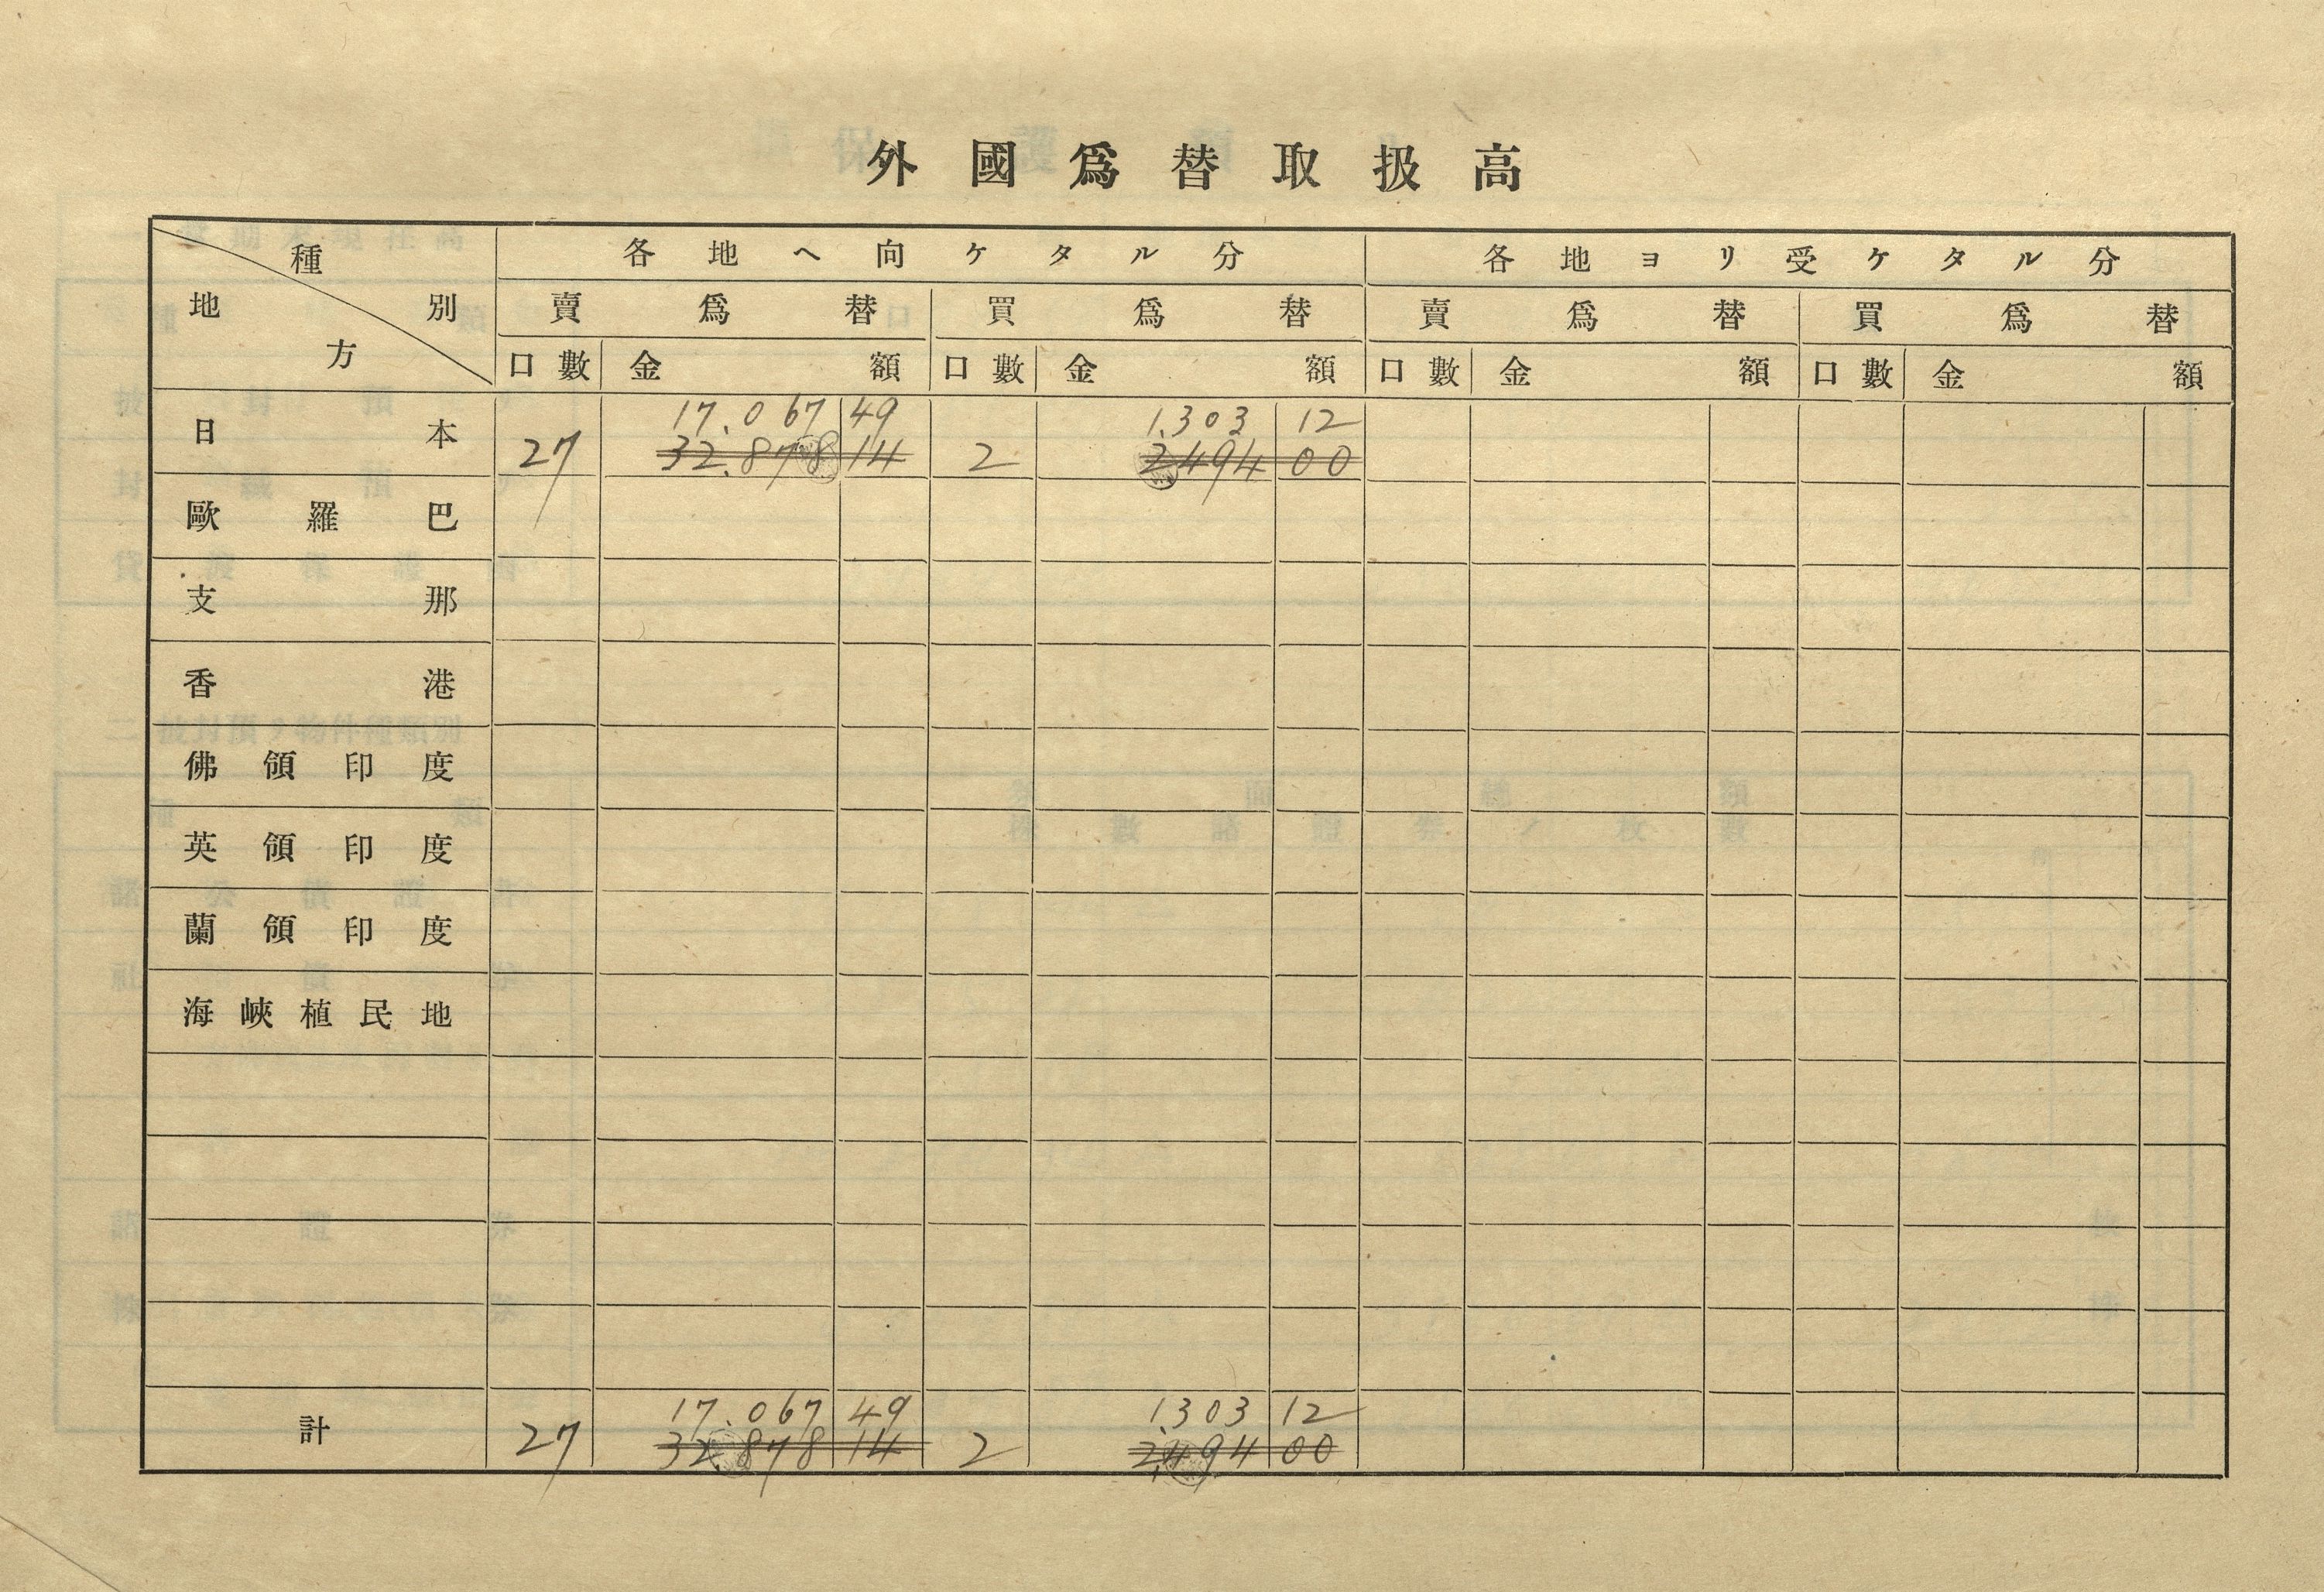 外國爲替取扱高
種別 地方 各地ヘ向ケタル分 各地ヨリ受ケタル分
賣爲替 買爲替 賣爲替 買爲替
口數 金額 口數 金額 口數 金額 口數 金額
17.067 49 1.303 12
日本 27 32.878 14 2 2.494 00
歐羅巴
支那
香港
佛領印度
英領印度
蘭領印度
海峽植民地
17.067 49 1.303 12
計 27 32.878 14 2 2.494 00